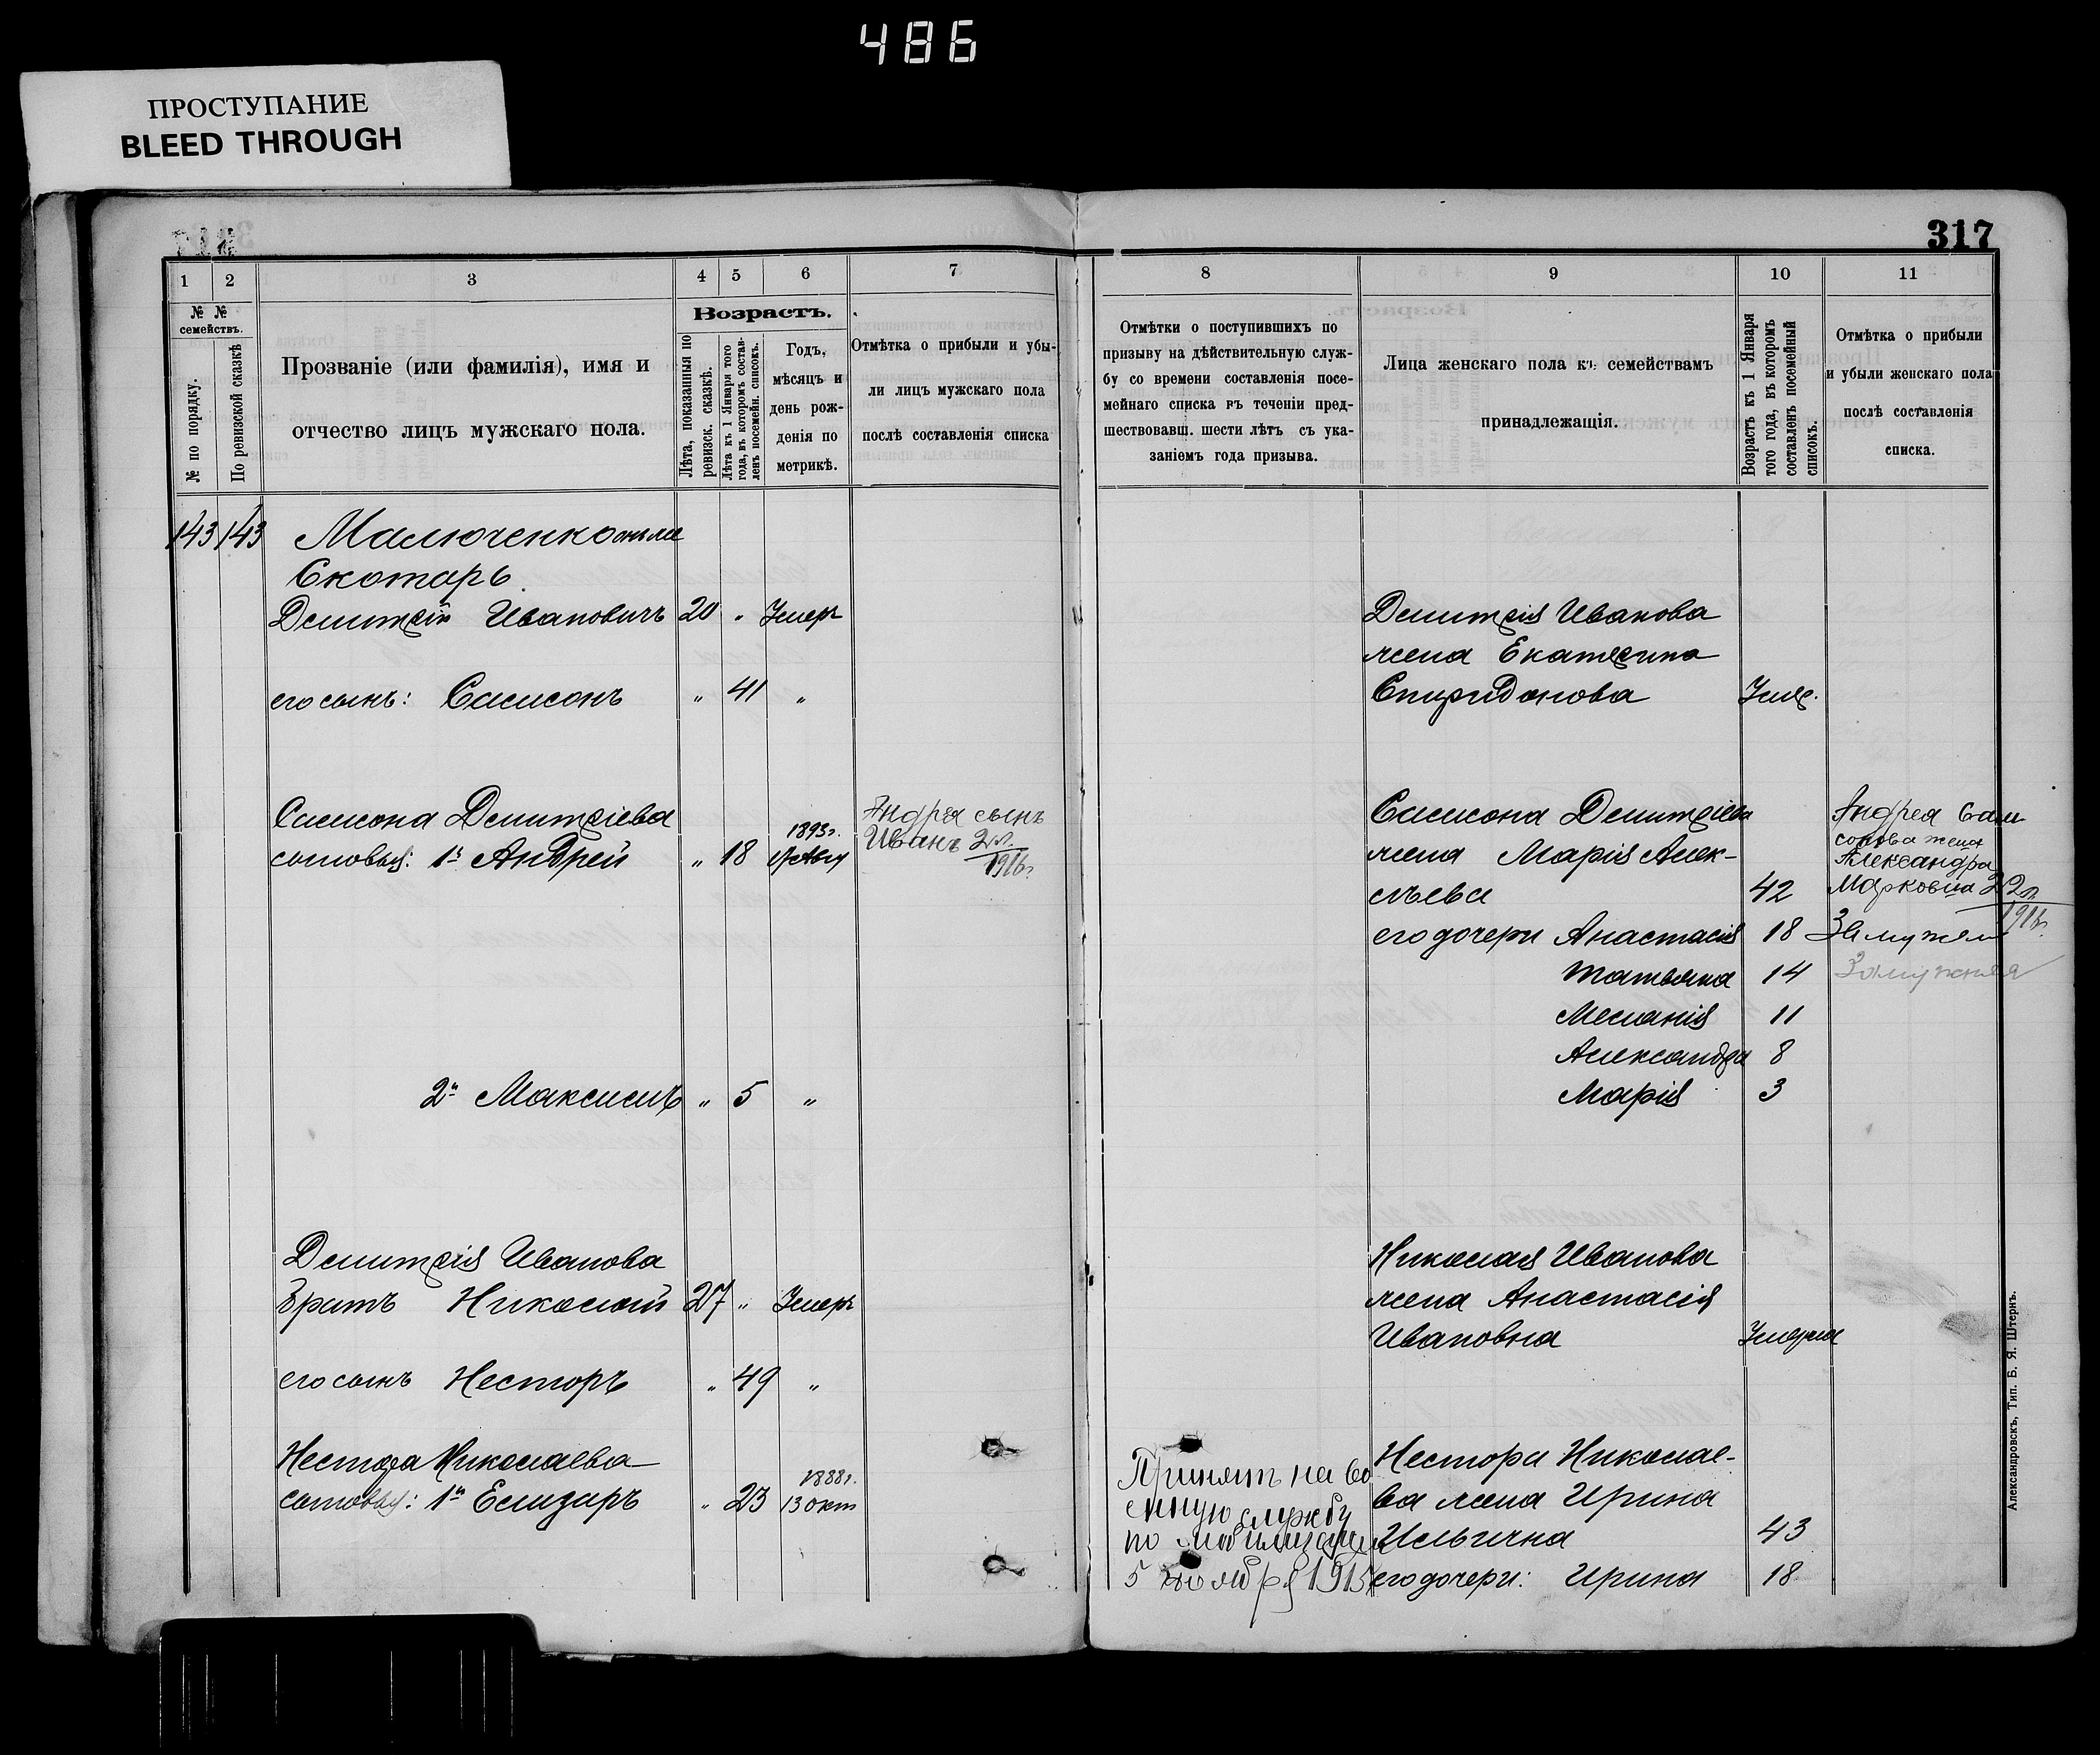 486
ПРОСТУПАНИЕ
BLEED THROUGH
317
1 2 3 4 5 6 7
№ № семействъ.
№ по порядку.
По ревизской сказкѣ
Прозваніе (или фамилія), имя и
отчество лицъ мужскаго пола.
Возрастъ.
Лѣта, показанныя по
ревизск. сказкѣ.
Лѣта къ 1 Января того
года, въ которомъ состав-
ленъ посемейн. списокъ.
Годъ,
мѣсяцъ и
день рож-
денія по
метрикѣ.
Отмѣтка о прибыли и убы-
ли лицъ мужскаго пола
послѣ составленія списка
143 143 Малюченко онъ же
Скотарь
Дмитрій Ивановичъ 20 " Умеръ
его сынъ: Самсонъ " 41 "
Самсона Дмитріева
сыновья: 1й Андрей " 18 1893г. 17 Авгу
Андрея сынъ
Иванъ 2 л.
1916г.
2й Максимъ " 5 "
Дмитрія Иванова
братъ Николай 27 " Умеръ
его сынъ Несторъ " 49 "
Нестора Николаева
сыновья: 1й Елизаръ " 23 1888г. 13 окт
8 9 10 11
Отмѣтки о поступившихъ по
призыву на дѣйствительную служ-
бу со времени составленія посе-
мейнаго списка въ теченіи пред-
шествовавш. шести лѣтъ съ ука-
заніемъ года призыва.
Лица женскаго пола къ семействамъ
принадлежащія.
Возрастъ къ 1 Января
того года, въ которомъ
составленъ посемейный
списокъ.
Отмѣтка о прибыли
и убыли женскаго пола
послѣ составленія
списка.
Дмитрія Иванова
жена Екатерина
Спиридонова Умер.
Самсона Дмитріева
жена Марія Алек-
сѣева 42
Андрея Сам
сонова жена
Александра
Марковна 22 л.
1916г.
его дочери Анастасія 18 Замужем
Татьяна 14 Замужняя
Меланія 11
Александра 8
Марія 3
Николая Иванова
жена Анастасія
Ивановна Умерла
Принятъ на во
енную службу
по мобилизации
5 ноября 1915
Нестора Николае-
ва жена Ирина
Ильична 43
его дочери: Ирина 18
Александровскъ, Тип. Б. Я. Штернъ.